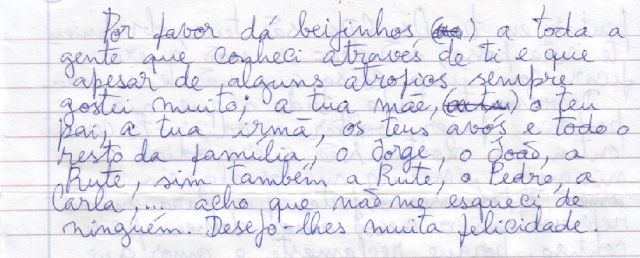 Por favor dá beijinhos () a toda a
gente que conheci através de ti e que
apesar de alguns atrofios sempre
gostei muito; a tua mãe, () o teu
pai, a tua irmã, os teus avós e todo o
resto da família, o Jorge, o João, a
Rute, sim também a Rute, o Pedro, a
Carla,... acho que não me esqueci de
ninguém. Desejo-lhes muita felicidade.